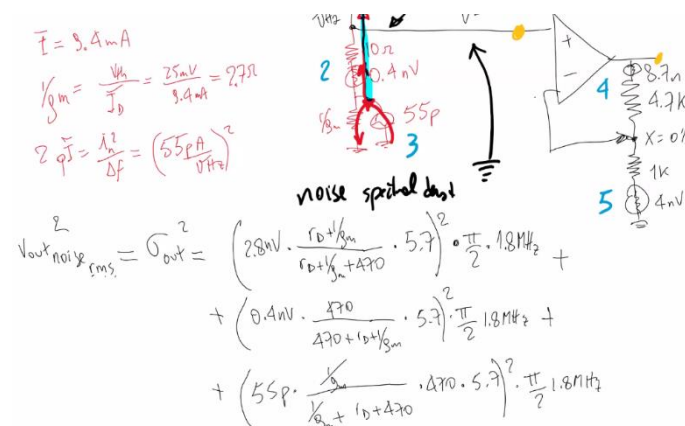 I̅ = 9.4mA
1/gm = Vth/I̅D = 25mV/9.4mA = 2.7Ω
2qI̅ = in²/Δf = (55pA/√Hz)²
√Hz
V=
2
10Ω
0.4nV
1/gm
55p
3
+
-
4
8.7n
4.7K
X=0%
1K
5
4nV
noise spectral dens
Vout noise rms² = σout² = (2.8nV · (rD+1/gm)/(rD+1/gm+470) · 5.7)² · π/2 · 1.8MHz +
+ (0.4nV · 470/(470+rD+1/gm) · 5.7)² · π/2 1.8MHz +
+ (55p · (1/gm)/(1/gm+rD+470) · 470 · 5.7)² · π/2 1.8MHz